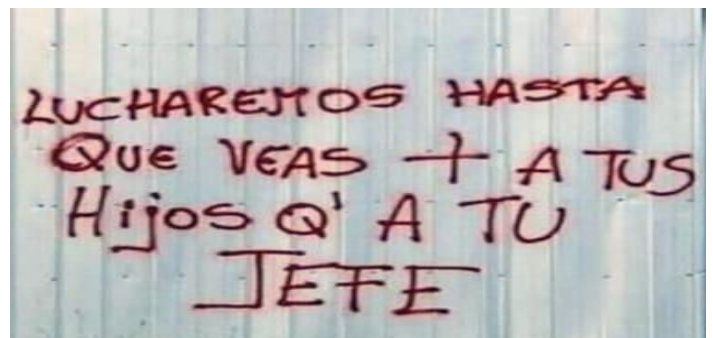 LUCHAREMOS HASTA
QUE VEAS + A TUS
HijOS Q' A TU
JEFE